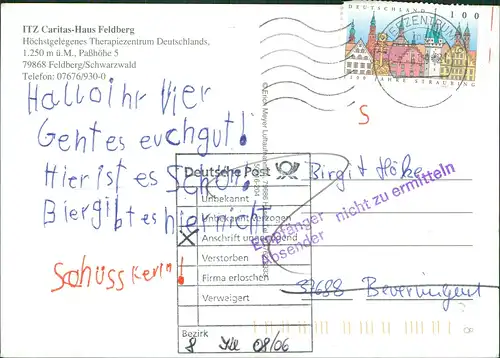 ITZ Caritas-Haus Feldberg
Höchstgelegenes Therapiezentrum Deutschlands,
1.250 m ü.M., Paßhöhe 5
79868 Feldberg/Schwarzwald
Telefon: 07676/930-0
Hallo ihr Vier
Geht es euch gut!
Hier ist es Schön!
Bier gibt es hier nicht
Schüss Kerin!
DEUTSCHLAND 100
1100 JAHRE STRAUBING
BRIEFZENTRUM
S
Deutsche Post
Unbekannt
Unbekannt verzogen
Anschrift ungenügend
Verstorben
Firma erloschen
Verweigert
Bezirk
8 08/06
Empfänger nicht zu ermitteln
Absender
Birgit Höke
37688 Beverungen